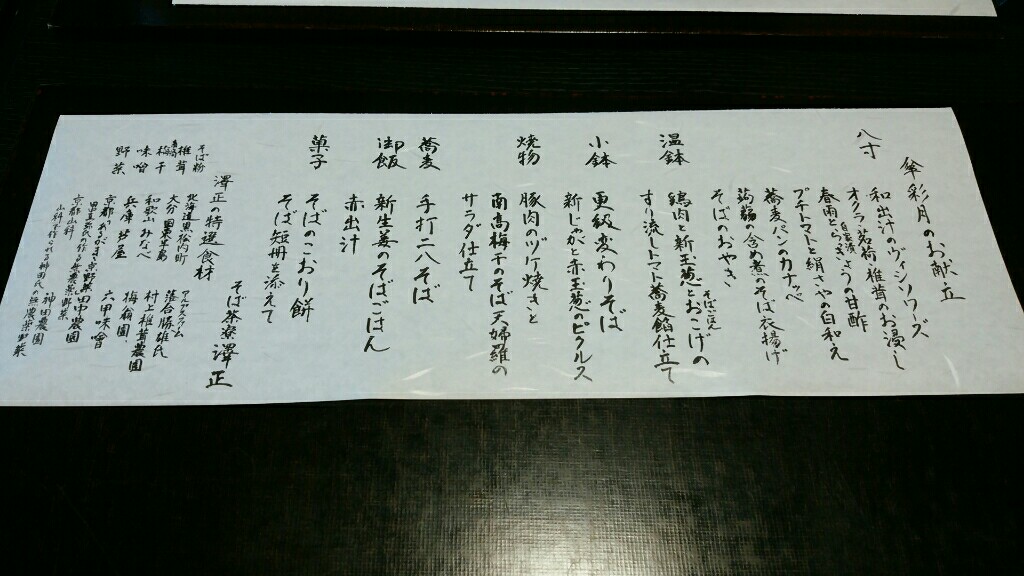 傘彩月のお献立
八寸
和出汁のヴィシソワーズ
オクラと茗荷、椎茸のお浸し
春雨とらっきょうの甘酢
プチトマトと絹さやの白和え
蕎麦パンのカナッペ
蒟蒻の含め煮のそば衣揚げ
そばのおやき
温鉢
鶏肉と新玉葱とおこげの
そばごはん
すり流しトマト蕎麦餡仕立て
小鉢
更級変わりそば
新じゃがと赤玉葱のピクルス
焼物
豚肉のヅケ焼きと
南高梅干のそば天婦羅の
サラダ仕立て
蕎麦
手打二八そば
御飯
新生姜のそばごはん
赤出汁
菓子
そばのこおり餅
そば短冊を添えて
そば茶寮 澤正
澤正の特選食材
そば粉 北海道黒松内町
椎茸 大分 落合勝雄氏
梅干 和歌山みなべ 村上椎茸農園
味噌 兵庫芦屋 梅翁園
野菜 六甲味噌
田中農園
京都山科 神田農園
山科で作られる神田氏の無農薬野菜